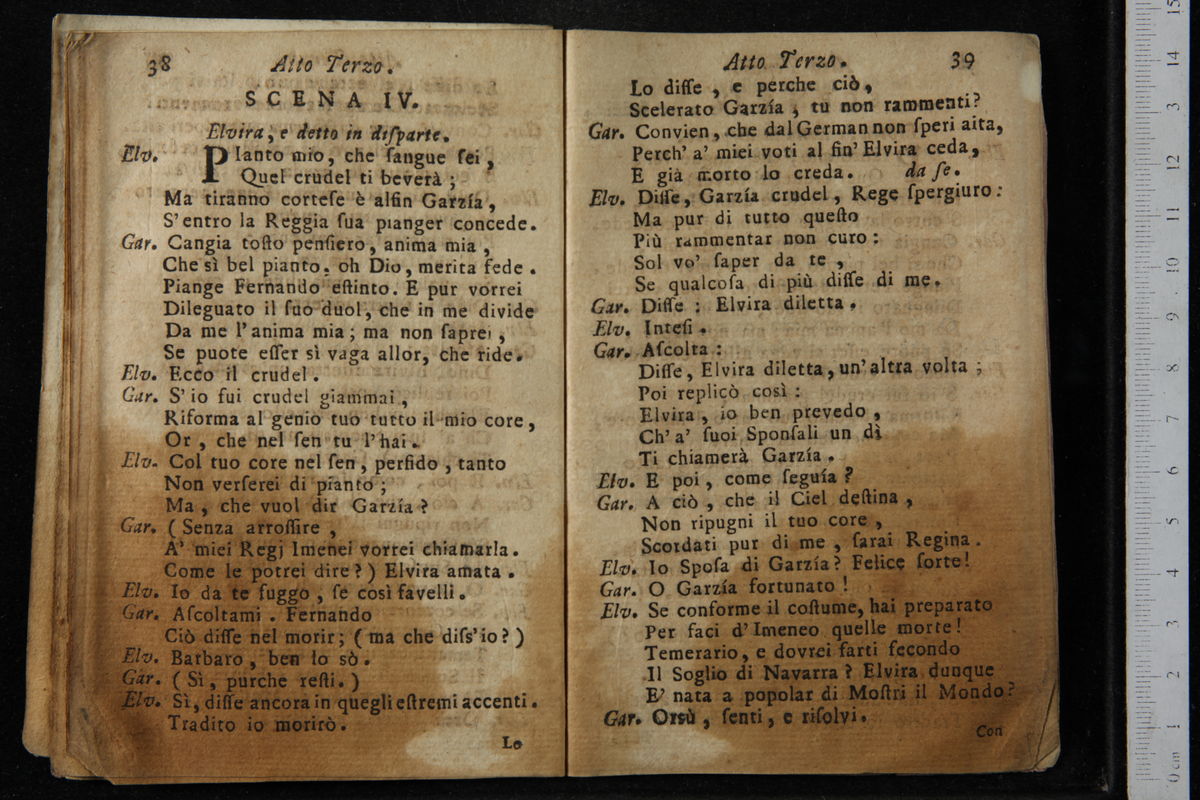 38 Atto Terzo.
SCENA IV.
Elvira, e detto in diſparte.
Elv. PIanto mio, che ſangue ſei,
Quel crudel ti beverà;
Ma tiranno corteſe è alfin Garzía,
S'entro la Reggia ſua pianger concede.
Gar. Cangia toſto penſiero, anima mia,
Che sì bel pianto, oh Dio, merita fede.
Piange Fernando eſtinto. E pur vorrei
Dileguato il ſuo duol, che in me divide
Da me l'anima mia; ma non ſaprei,
Se puote eſſer sì vaga allor, che ride.
Elv. Ecco il crudel.
Gar. S'io fui crudel giammai,
Riforma al genio tuo tutto il mio core,
Or, che nel ſen tu l'hai.
Elv. Col tuo core nel ſen, perfido, tanto
Non verſerei di pianto;
Ma, che vuol dir Garzía?
Gar. (Senza arroſſire,
A' miei Regj Imenei vorrei chiamarla.
Come le potrei dire?) Elvira amata.
Elv. Io da te fuggo, ſe così favelli.
Gar. Aſcoltami. Fernando
Ciò diſſe nel morir; (ma che diſs'io?)
Elv. Barbaro, ben lo sò.
Gar. (Sì, purche reſti.)
Elv. Sì, diſſe ancora in quegli eſtremi accenti.
Tradito io morirò.
Lo
Atto Terzo. 39
Lo diſſe, e perche ciò,
Scelerato Garzía, tu non rammenti?
Gar. Convien, che dal German non ſperi aita,
Perch' a' miei voti al fin' Elvira ceda,
E già morto lo creda. da ſe.
Elv. Diſſe, Garzía crudel, Rege ſpergiuro:
Ma pur di tutto queſto
Più rammentar non curo:
Sol vo' ſaper da te,
Se qualcoſa di più diſſe di me.
Gar. Diſſe: Elvira diletta.
Elv. Inteſi.
Gar. Aſcolta:
Diſſe, Elvira diletta, un'altra volta;
Poi replicò così:
Elvira, io ben prevedo,
Ch'a' ſuoi Sponſali un dì
Ti chiamerà Garzía.
Elv. E poi, come ſeguía?
Gar. A ciò, che il Ciel deſtina,
Non ripugni il tuo core,
Scordati pur di me, ſarai Regina.
Elv. Io Spoſa di Garzía? Felice ſorte!
Gar. O Garzía fortunato!
Elv. Se conforme il coſtume, hai preparato
Per faci d'Imeneo quelle morte!
Temerario, e dovrei farti fecondo
Il Soglio di Navarra? Elvira dunque
E' nata a popolar di Moſtri il Mondo?
Gar. Orsù, ſenti, e riſolvi.
Con
15
14
13
12
11
10
9
8
7
6
5
4
3
2
1
0 cm